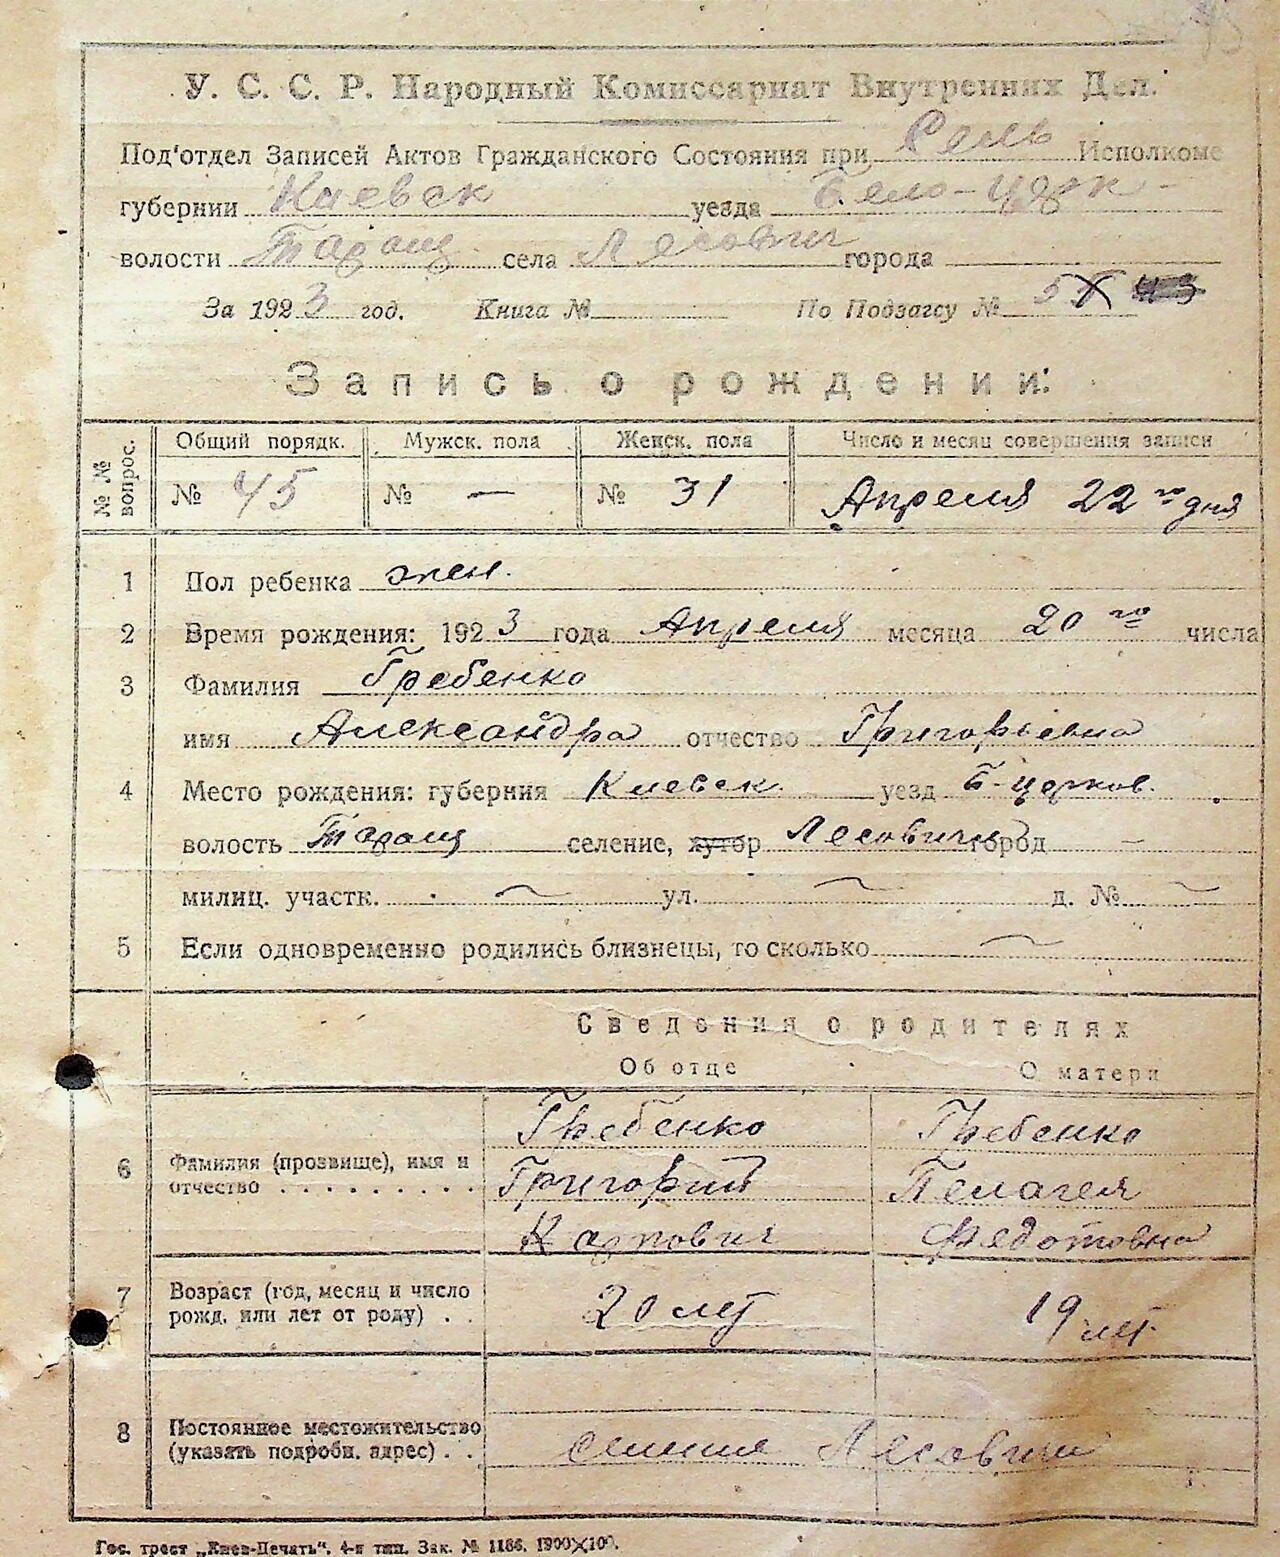 У. С. С. Р. Народный Комиссариат Внутренних Дел.
Под'отдел Записей Актов Гражданского Состояния при Сель Исполкоме
губернии Киевск уезда Бело-Церк-
волости Таращ села Лесович города
За 1923 год. Книга № По Подзагсу №
Запись о рождении:
№ № вопрос. Общий порядк. Мужск. пола Женск. пола Число и месяц совершения записи
№ 45 № — № 31 Апреля 22 го дня
1 Пол ребенка жен.
2 Время рождения: 1923 года Апреля месяца 20 го числа
3 Фамилия Гребенко
имя Александра отчество Григорьевна
4 Место рождения: губерния Киевск. уезд Б-церков.
волость Таращ селение, хутор Лесовичи город —
милиц. участк. — ул. — д. № —
5 Если одновременно родились близнецы, то сколько —
Сведения о родителях
Об отце О матери
Гребенко Гребенко
6 Фамилия (прозвище), имя и отчество . . . . . . . . . Григорий Пелагея
Карпович Федотовна
7 Возраст (год, месяц и число рожд. или лет от роду) . . 20 лет 19 лет.
8 Постоянное местожительство (указать подробн. адрес) . . селение Лесовичи
Гос. трест „Киев-Печать", 4-я тип. Зак. № 1186. 1900×100.